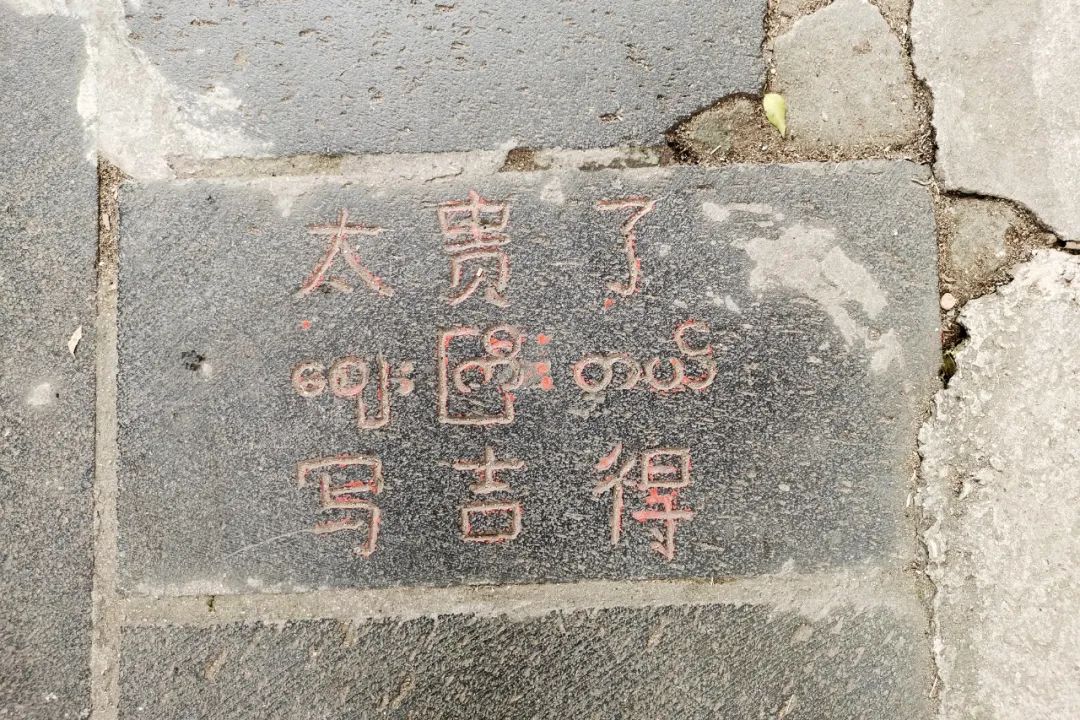 太贵了
ဈေး ကြီး တယ်
写吉得